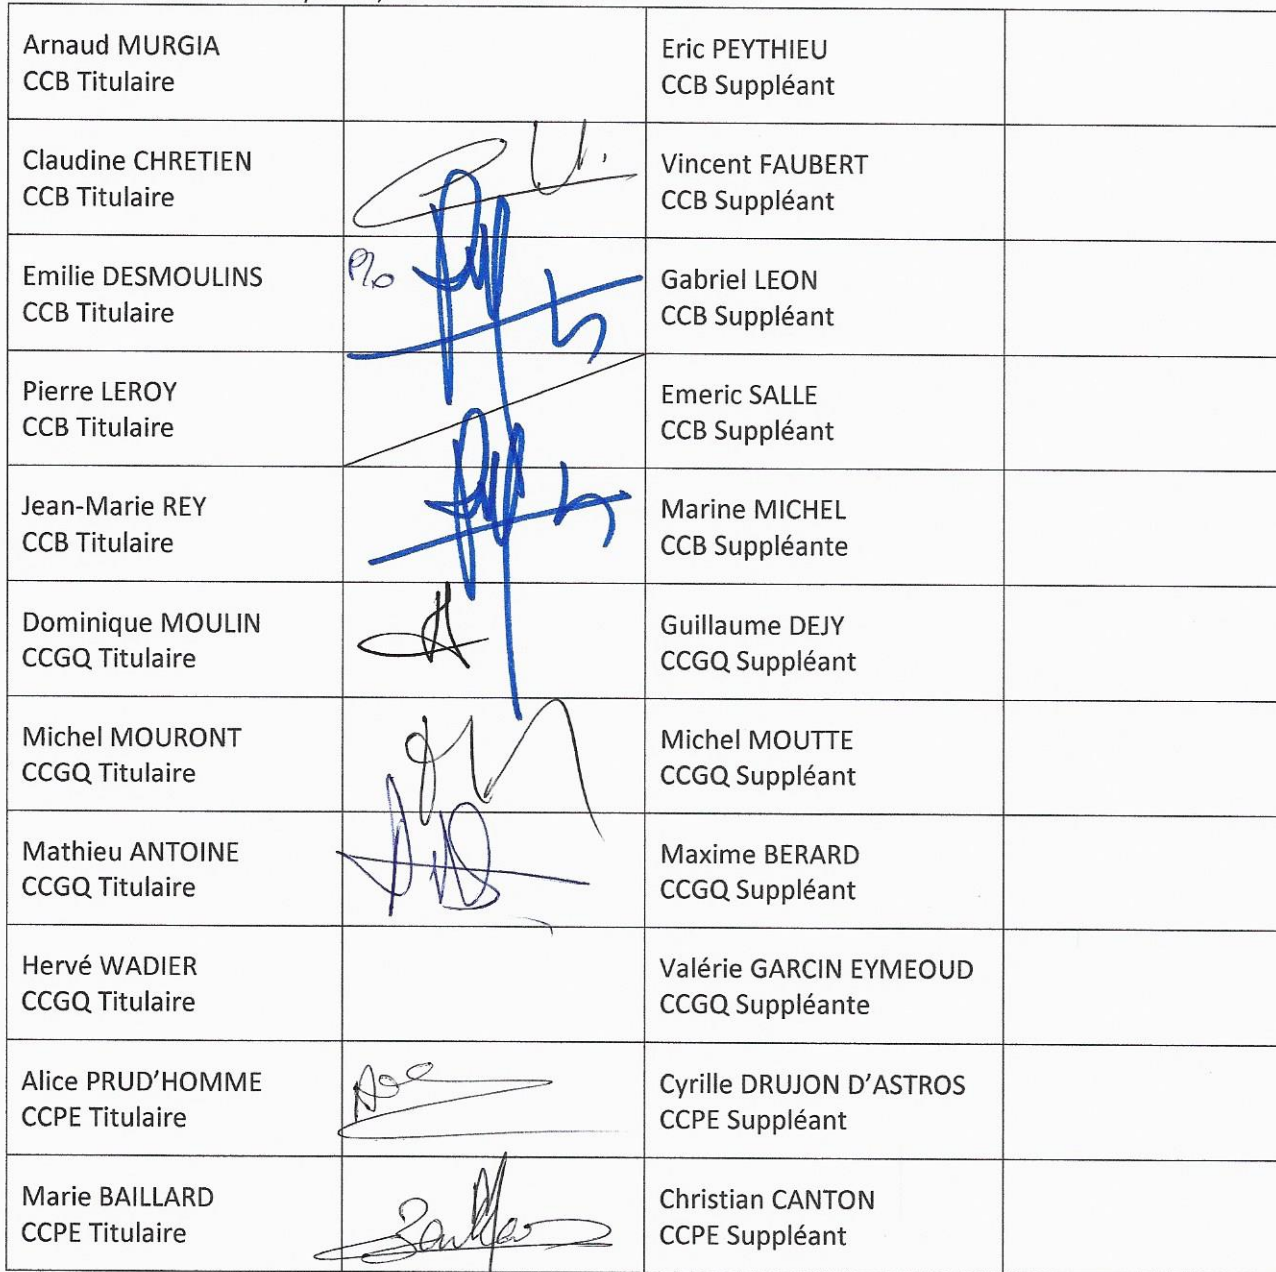 Arnaud MURGIA
CCB Titulaire
Eric PEYTHIEU
CCB Suppléant
Claudine CHRETIEN
CCB Titulaire
Vincent FAUBERT
CCB Suppléant
Emilie DESMOULINS
CCB Titulaire
P/o
Gabriel LEON
CCB Suppléant
Pierre LEROY
CCB Titulaire
Emeric SALLE
CCB Suppléant
Jean-Marie REY
CCB Titulaire
Marine MICHEL
CCB Suppléante
Dominique MOULIN
CCGQ Titulaire
Guillaume DEJY
CCGQ Suppléant
Michel MOURONT
CCGQ Titulaire
Michel MOUTTE
CCGQ Suppléant
Mathieu ANTOINE
CCGQ Titulaire
Maxime BERARD
CCGQ Suppléant
Hervé WADIER
CCGQ Titulaire
Valérie GARCIN EYMEOUD
CCGQ Suppléante
Alice PRUD'HOMME
CCPE Titulaire
Cyrille DRUJON D'ASTROS
CCPE Suppléant
Marie BAILLARD
CCPE Titulaire
Christian CANTON
CCPE Suppléant